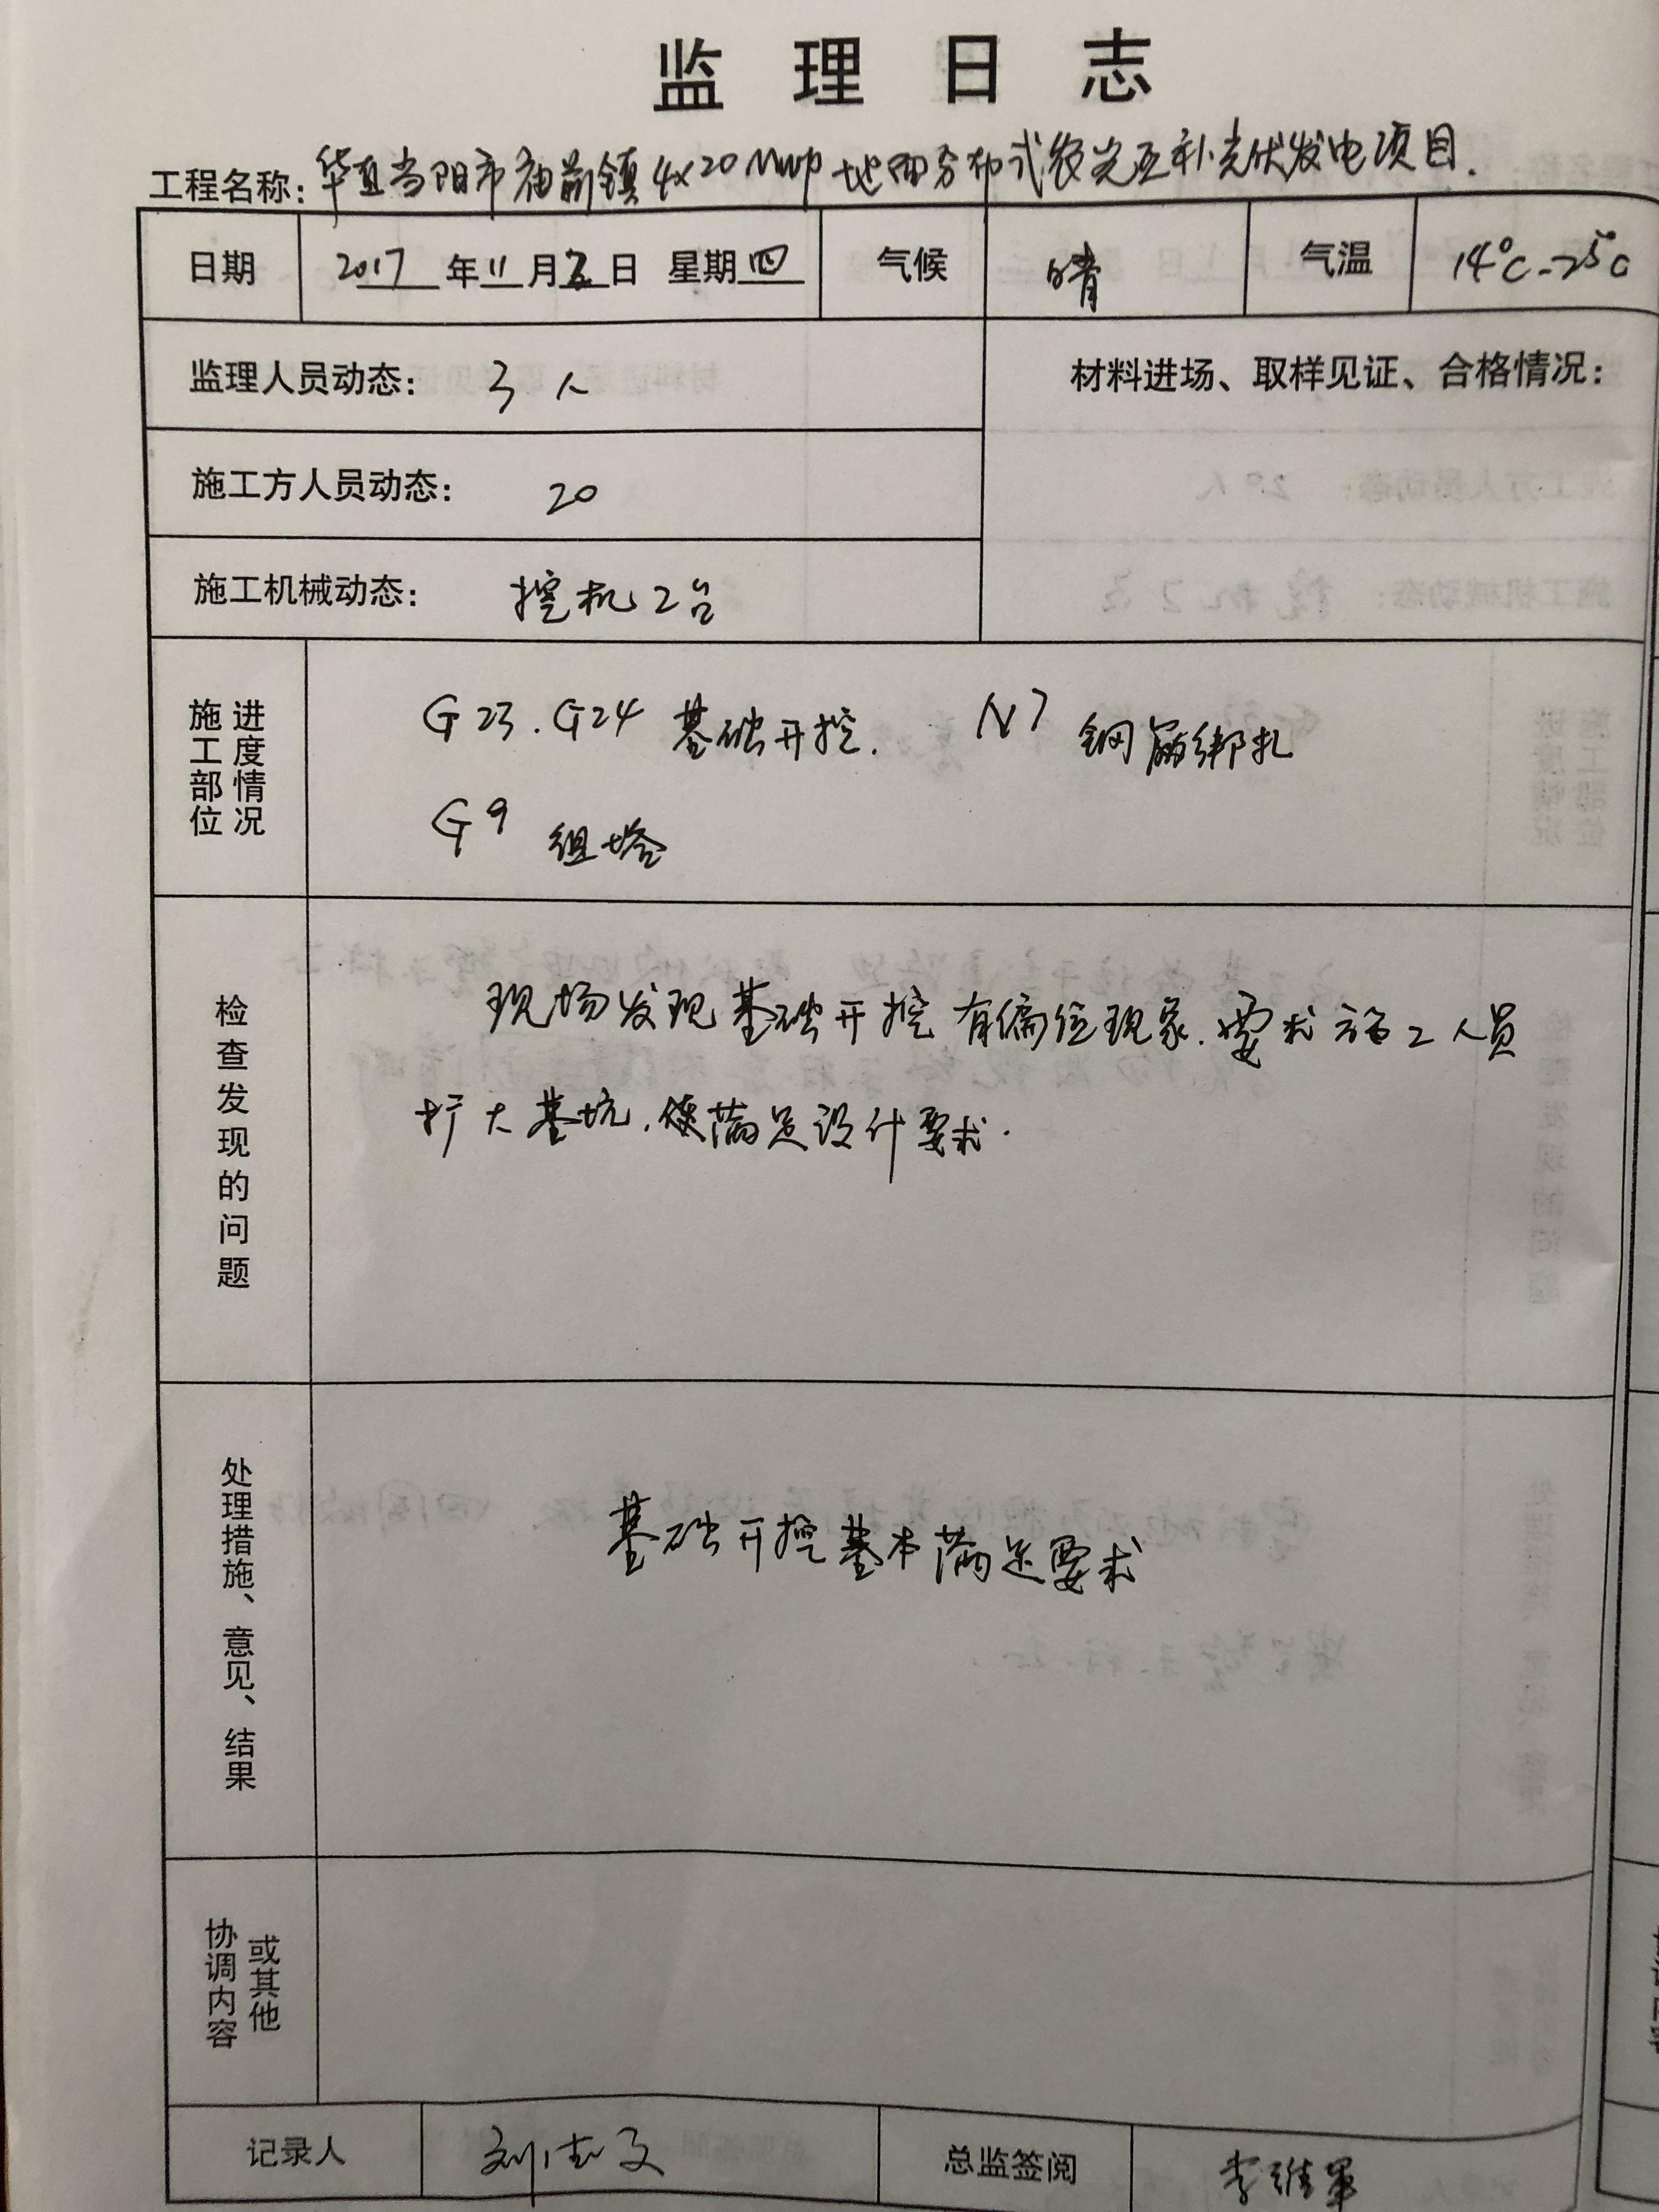 监理日志
工程名称: 华直当阳市庙前镇4×20MWP地面分布式农光互补光伏发电项目.
日期 2017年11月2日 星期四 气候 晴 气温 14℃-25℃
监理人员动态: 3人 材料进场、取样见证、合格情况:
施工方人员动态: 20
施工机械动态: 挖机2台
施工部位进度情况
G23.G24基础开挖. N7钢筋绑扎
G9组塔
检查发现的问题
现场发现基础开挖有偏位现象.要求施工人员
扩大基坑.使满足设计要求.
处理措施、意见、结果
基础开挖基本满足要求
协调内容或其他
记录人 刘志文 总监签阅 李维军